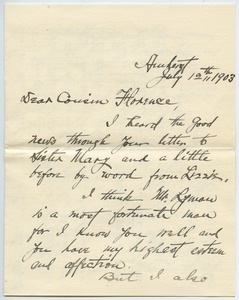 Amherst
July 12th, 1903
Dear Cousin Florence,
I heard the good
news through your letter to
Sister Mary and a little
before by word from Lizzie.
I think Mr Lyman
is a most fortunate man
for I know you well and
you have my highest esteem
and affection.
But I also